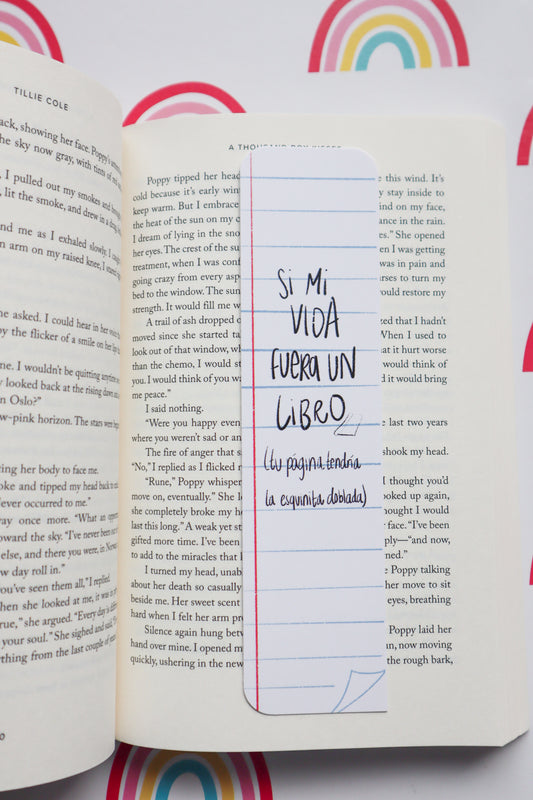 TILLIE COLE
ack, showing her face. Poppy's
he sky now gray, with tints of
, I pulled out my smokes and
, lit the smoke, and drew in a
nd me as I exhaled slowly. I
n arm on my raised knee, I
she asked. I could hear in her
by the flicker of a smile on her
me. I wouldn't be quitting anytime
y looked back at the rising down
n Oslo?"
w-pink horizon. The stars were
ring her body to face me.
oke and tipped my head back to
ever occurred to me."
way once more. "What an
toward the sky. "I've never been
else, and there you were, in
w day roll in."
you've seen them all," I replied.
hen she looked at me, it was
rue," she argued. "Every day is
your soul." She sighed and
ything from the last couple of
A THOUSAND BOY KISSES
Poppy tipped her head e this wind. It's
cold because it's early win y stay inside to
keep warm. But I embrace ind on my face,
the heat of the sun on my c ance in the rain.
I dream of lying in the snow es." She opened
her eyes. The crest of the su en I was getting
treatment, when I was conf was in pain and
going crazy from every asp rses to turn my
bed to the window. The sun would restore my
strength. It would fill me w
A trail of ash dropped o zed that I hadn't
moved since she started ta When I used to
look out of that window, wh at it hurt worse
than the chemo, I would st would think of
you. I would think of you w d it would bring
me peace."
I said nothing.
"Were you happy even e last two years
where you weren't sad or an
The fire of anger that s shook my head.
"No," I replied as I flicked r
"Rune," Poppy whisper I thought you'd
move on, eventually." She l ooked up again,
she completely broke my h ought I would
last this long." A weak yet st face. "I've been
gifted more time. I've been ply—"and now,
to add to the miracles that l ned."
I turned my head, unab e Poppy talking
about her death so casually her move to sit
beside me. Her sweet scent eyes, breathing
hard when I felt her arm pr
Silence again hung betw Poppy laid her
hand over mine. I opened m n, now moving
quickly, ushering in the new the rough bark,
SI MI
VIDA
FUERA UN
LIBRO
(tu página tendría
la esquinita doblada)